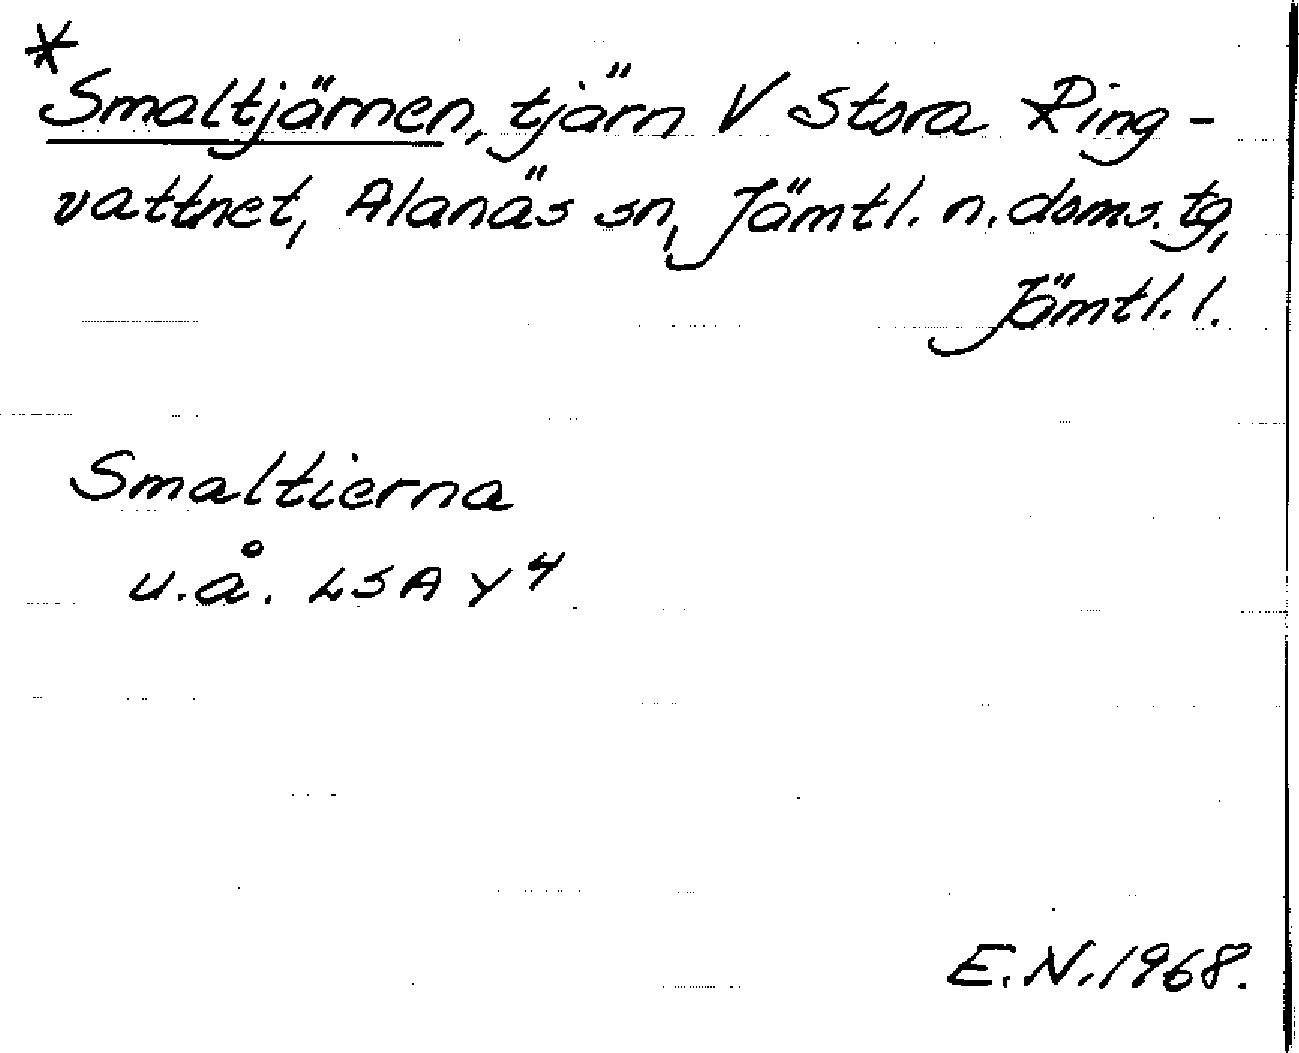 *
Smaltjärnen, tjärn V Stora Ring-
vattnet, Alanäs sn, Jämtl. n. doms. tg,
Jämtl. l.
Smaltierna
u.å. LSA Y4
E.N. 1968.